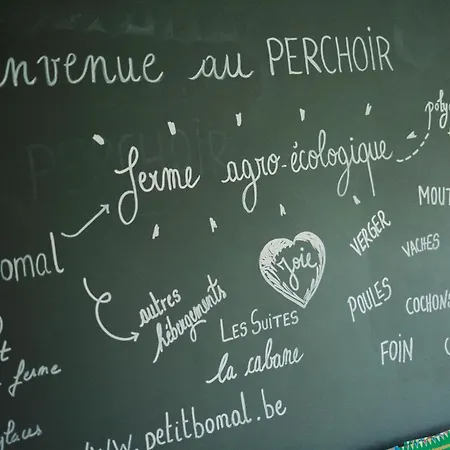 nvenue au PERCHOIR
poly
ferme agro-écologique
MOUT
omal
VERGER
VACHES
Joie
autres
hébergements
POULES
COCHONS
LES SUITES
la cabane
FOIN
ferme
glaces
www.petitbomal.be